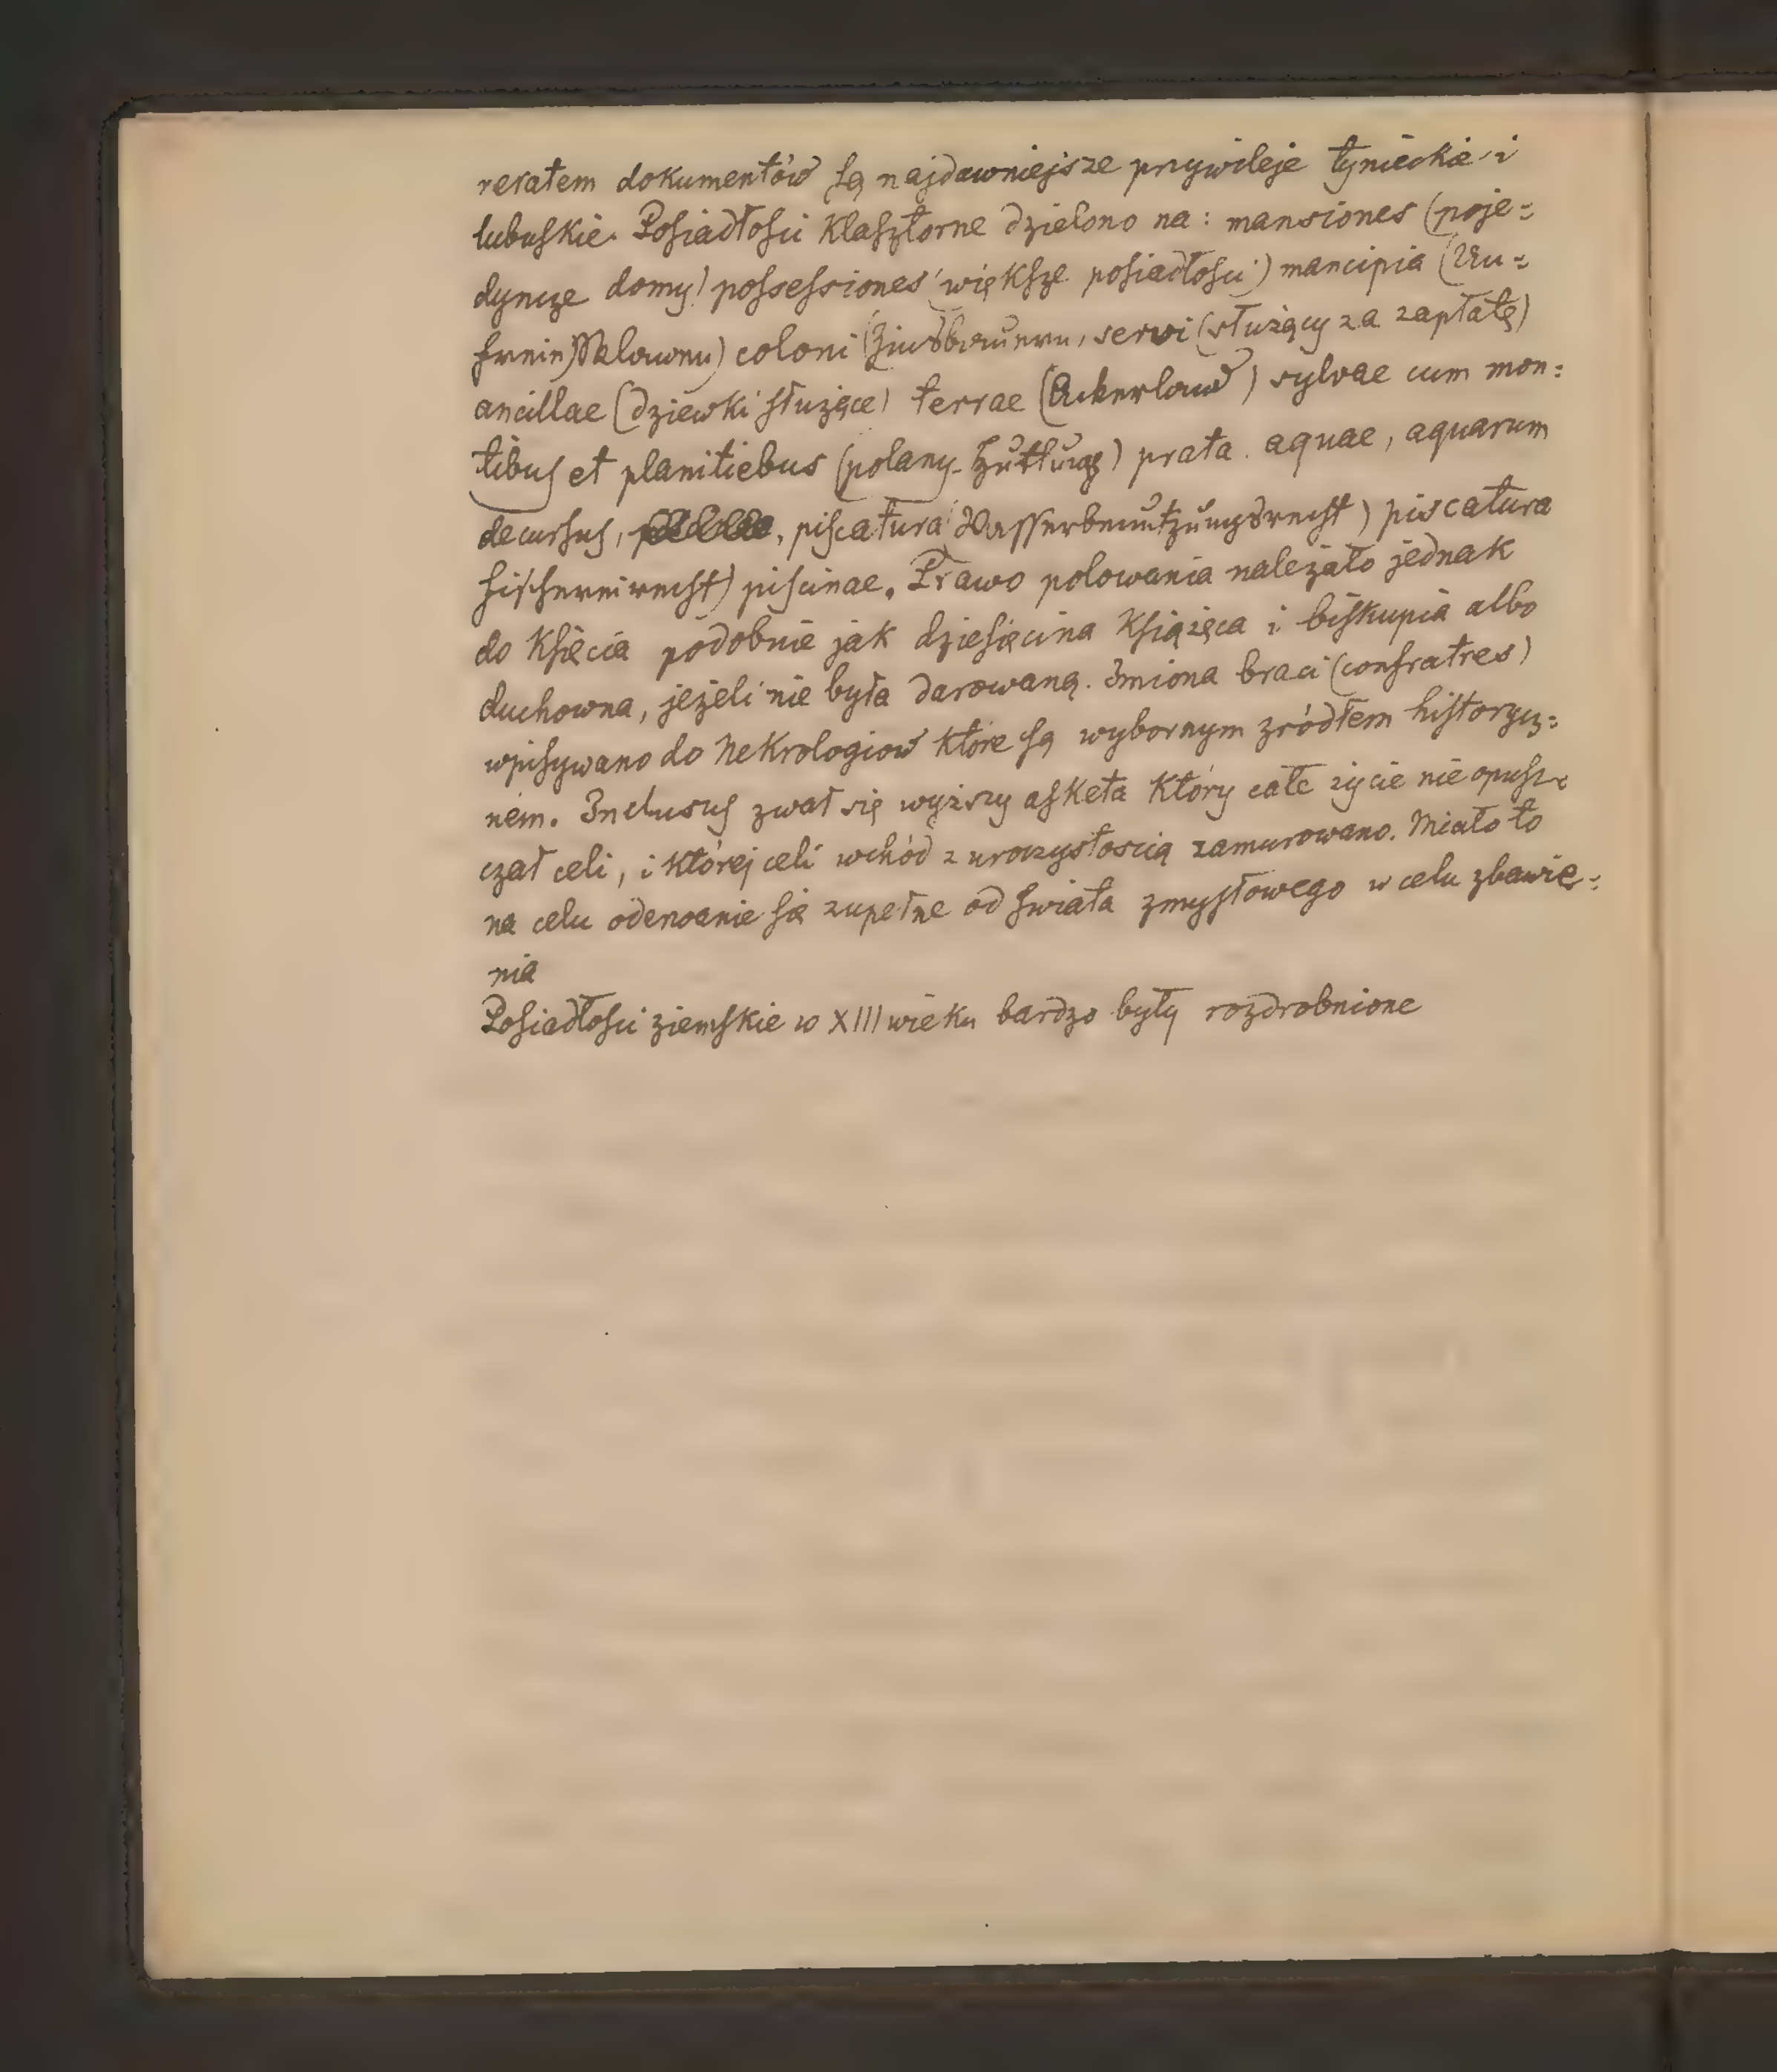 reratem dokumentów są najdawniejsze przywileje tynieckie i
lubuskie. Posiadłości klasztorne dzielono na: mansiones (poje=
dyncze domy) possessiones (większe posiadłości) mancipia (Un=
freie, Sklaven) coloni (Zinsbauern, servi (służący za zapłatę)
ancillae (dziewki służące) terrae (Ackerland) sylvae cum mon=
tibus et planitiebus (polany-Hutung) prata. aquae, aquarum
decursus, , piscatura (Wasserbenutzungsrecht) piscatura
Fischereirecht) piscinae. Prawo polowania należało jednak
do księcia podobnie jak dziesięcina książęca i biskupia albo
duchowna, jeżeli nie była darowaną. Imiona braci (confratres)
wpisywano do Nekrologiów które są wybornym zródłem history=
ném. Inclusus zwał się wyższy asketa który całe życie nie opusz=
czał celi, i której celi wchód z uroczystością zamurowano. Miało to
na celu oderwanie się zupełne od świata zmysłowego w celu zbawie=
nia
Posiadłości ziemskie w XIII wieku bardzo były rozdrobnione